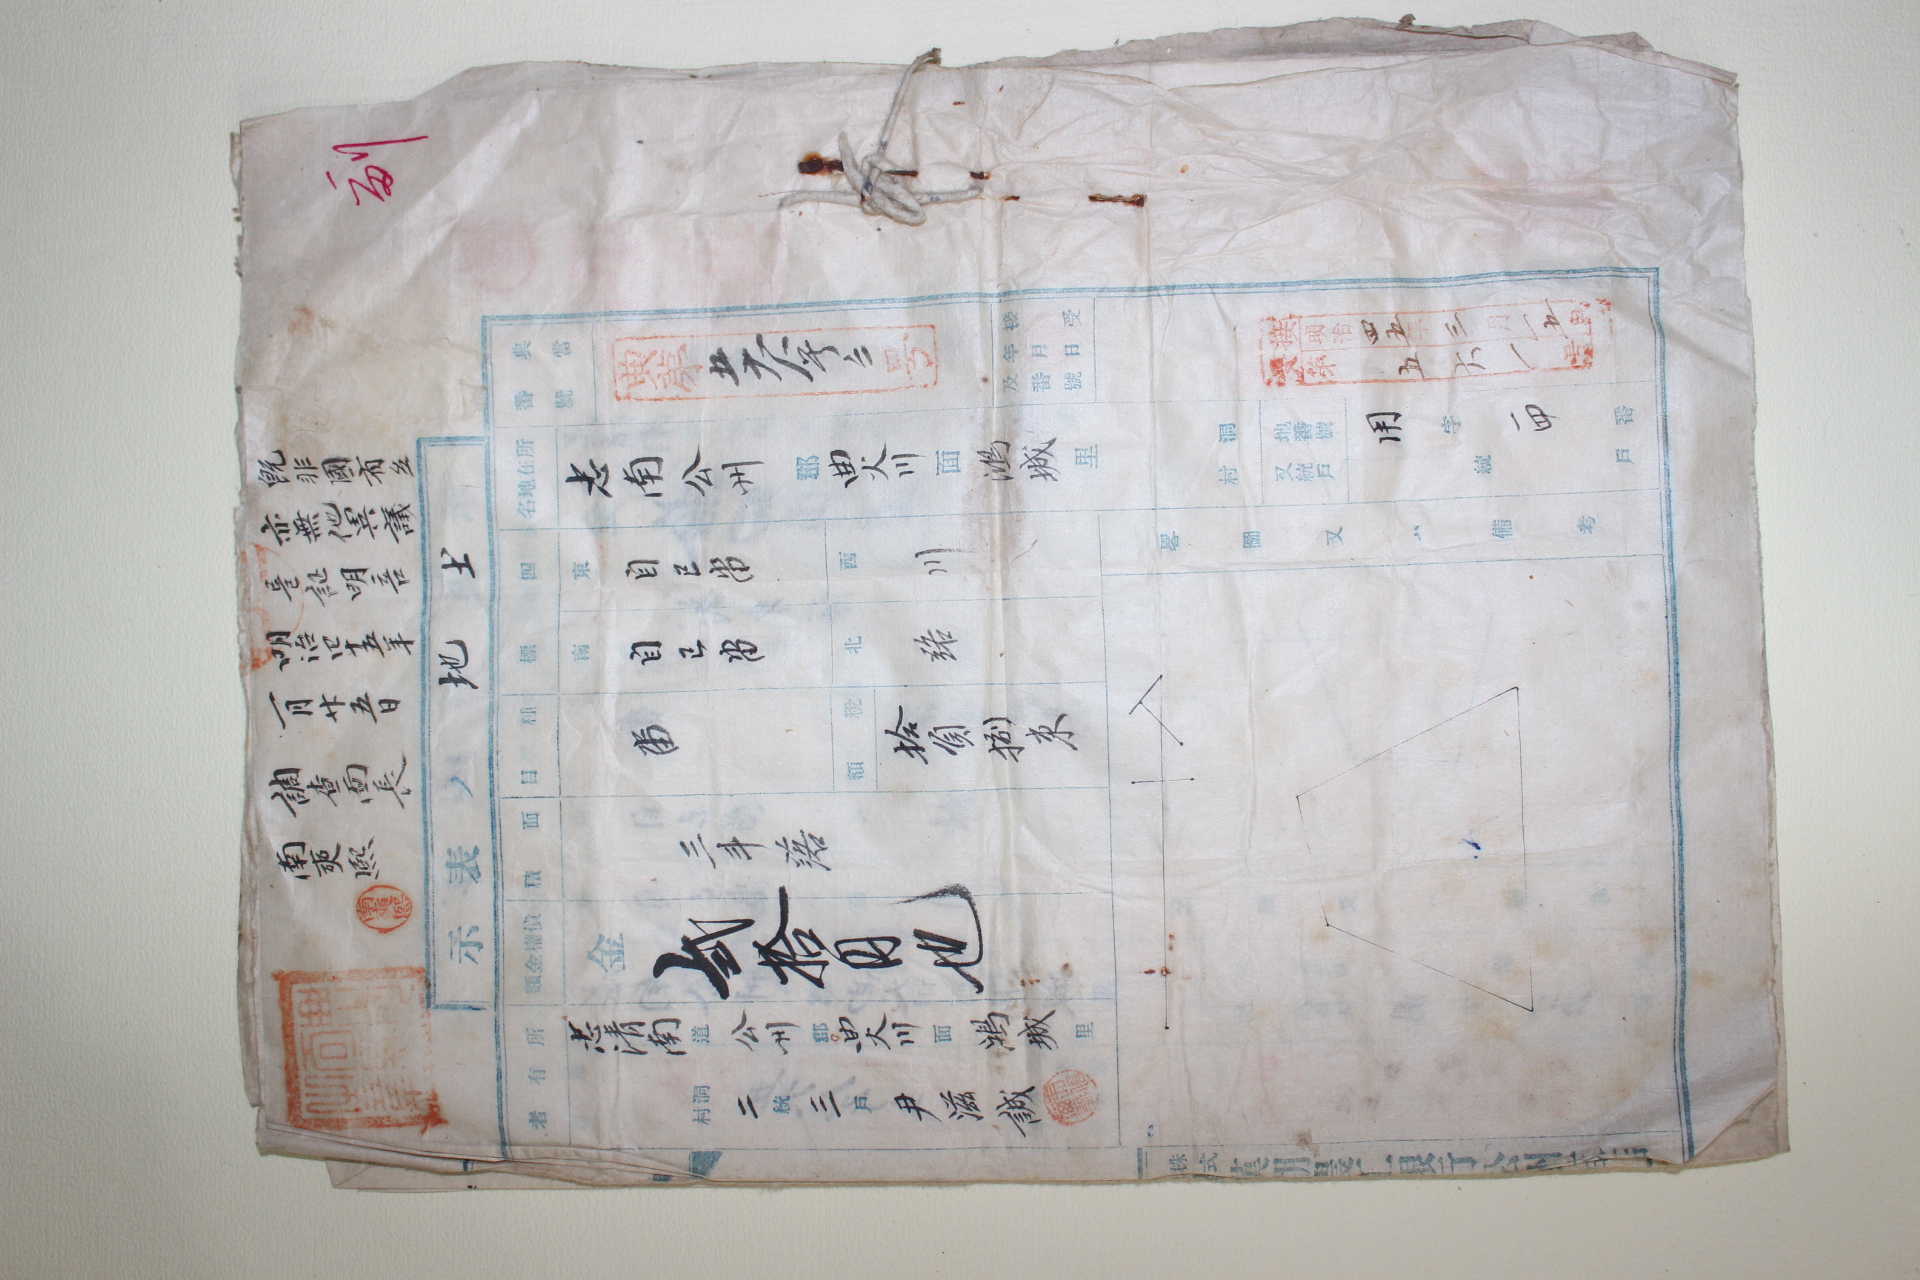 副
既非國有亦
亦無他異議
証明
明治四十五年
一月廿五日
調查面長
南奭熙
土地ノ表示
典當番號
典第五六一号ノ二号
接受年月日及番號
接受
明治四五年三月一五日
第五六一号
所在地名
忠南公州郡曲火川面鴻城里
洞村
地番號又統戶
用字四番
統戶
四標
東 自己畓
西 川
南 自己畓
北 路
種目
畓
稅額
拾負捌束
面積
三斗落
債權金額
金 貳拾円也
所有者
忠清南道公州郡曲火川面鴻城里
洞村二統三戶尹滋誠
畧圖又ハ備考
株式
漢湖農工銀行公州支店